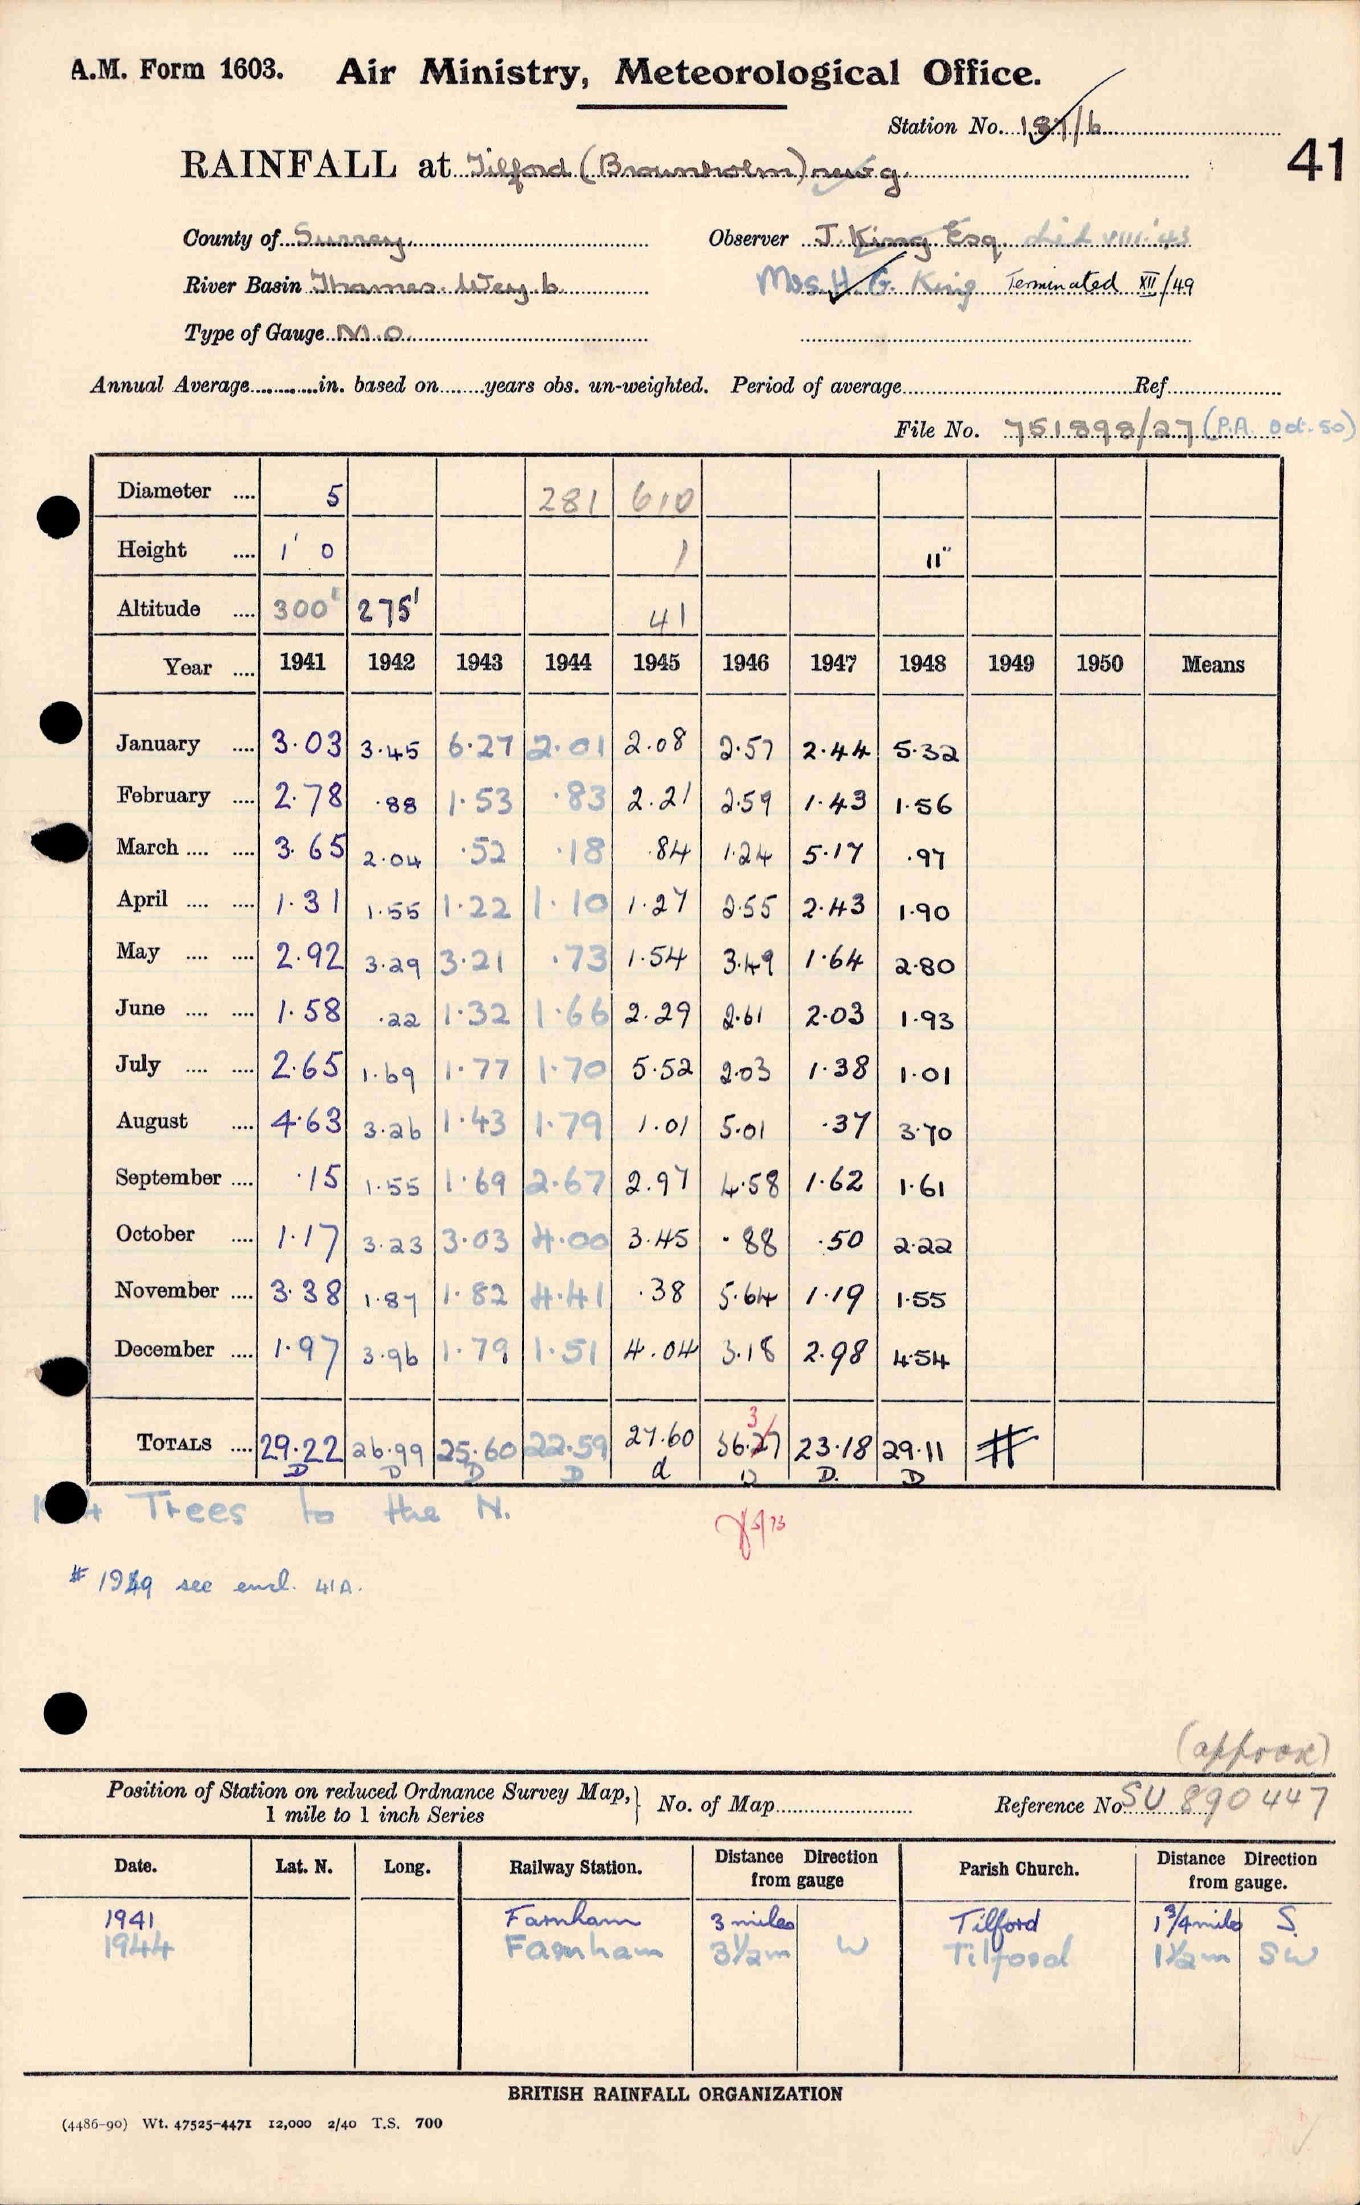 A.M. Form 1603. Air Ministry, Meteorological Office.
Station No. 187/6
41
RAINFALL at Tilford (Brownholm) new g.
County of Surrey. Observer J. King Esq. died VIII.'43
River Basin Thames. Wey b. Mrs. H. G. King Terminated XII/49
Type of Gauge M.O.
Annual Average............in. based on.......years obs. un-weighted. Period of average............Ref............
File No. 751898/27 (P.A. Oct. 50)
Diameter .... 5 281 610
Height .... 1' 0 1 11"
Altitude .... 300' 275' 41
Year .... 1941 1942 1943 1944 1945 1946 1947 1948 1949 1950 Means
January .... 3.03 3.45 6.27 2.01 2.08 2.57 2.44 5.32
February .... 2.78 .88 1.53 .83 2.21 2.59 1.43 1.56
March .... .... 3.65 2.04 .52 .18 .84 1.24 5.17 .97
April .... .... 1.31 1.55 1.22 1.10 1.27 2.55 2.43 1.90
May .... .... 2.92 3.29 3.21 .73 1.54 3.49 1.64 2.80
June .... .... 1.58 .22 1.32 1.66 2.29 2.61 2.03 1.93
July .... .... 2.65 1.69 1.77 1.70 5.52 2.03 1.38 1.01
August .... 4.63 3.26 1.43 1.79 1.01 5.01 .37 3.70
September .... .15 1.55 1.69 2.67 2.97 4.58 1.62 1.61
October .... 1.17 3.23 3.03 4.00 3.45 .88 .50 2.22
November .... 3.38 1.87 1.82 4.41 .38 5.64 1.19 1.55
December .... 1.97 3.96 1.79 1.51 4.04 3.18 2.98 4.54
3
TOTALS .... 29.22 26.99 25.60 22.59 27.60 36.27 23.18 29.11 #
D D D D d D D. D
Trees to the N.
5/73
# 1949 see encl. 41A.
(approx)
Position of Station on reduced Ordnance Survey Map, 1 mile to 1 inch Series No. of Map............ Reference No SU 890447
Date. Lat. N. Long. Railway Station. Distance Direction from gauge Parish Church. Distance Direction from gauge.
1941 Farnham 3 miles Tilford 1 3/4 mile S.
1944 Farnham 3 1/2 m W Tilford 1 1/2 m SW
BRITISH RAINFALL ORGANIZATION
(4486-90) Wt. 47525-4471 12,000 2/40 T.S. 700